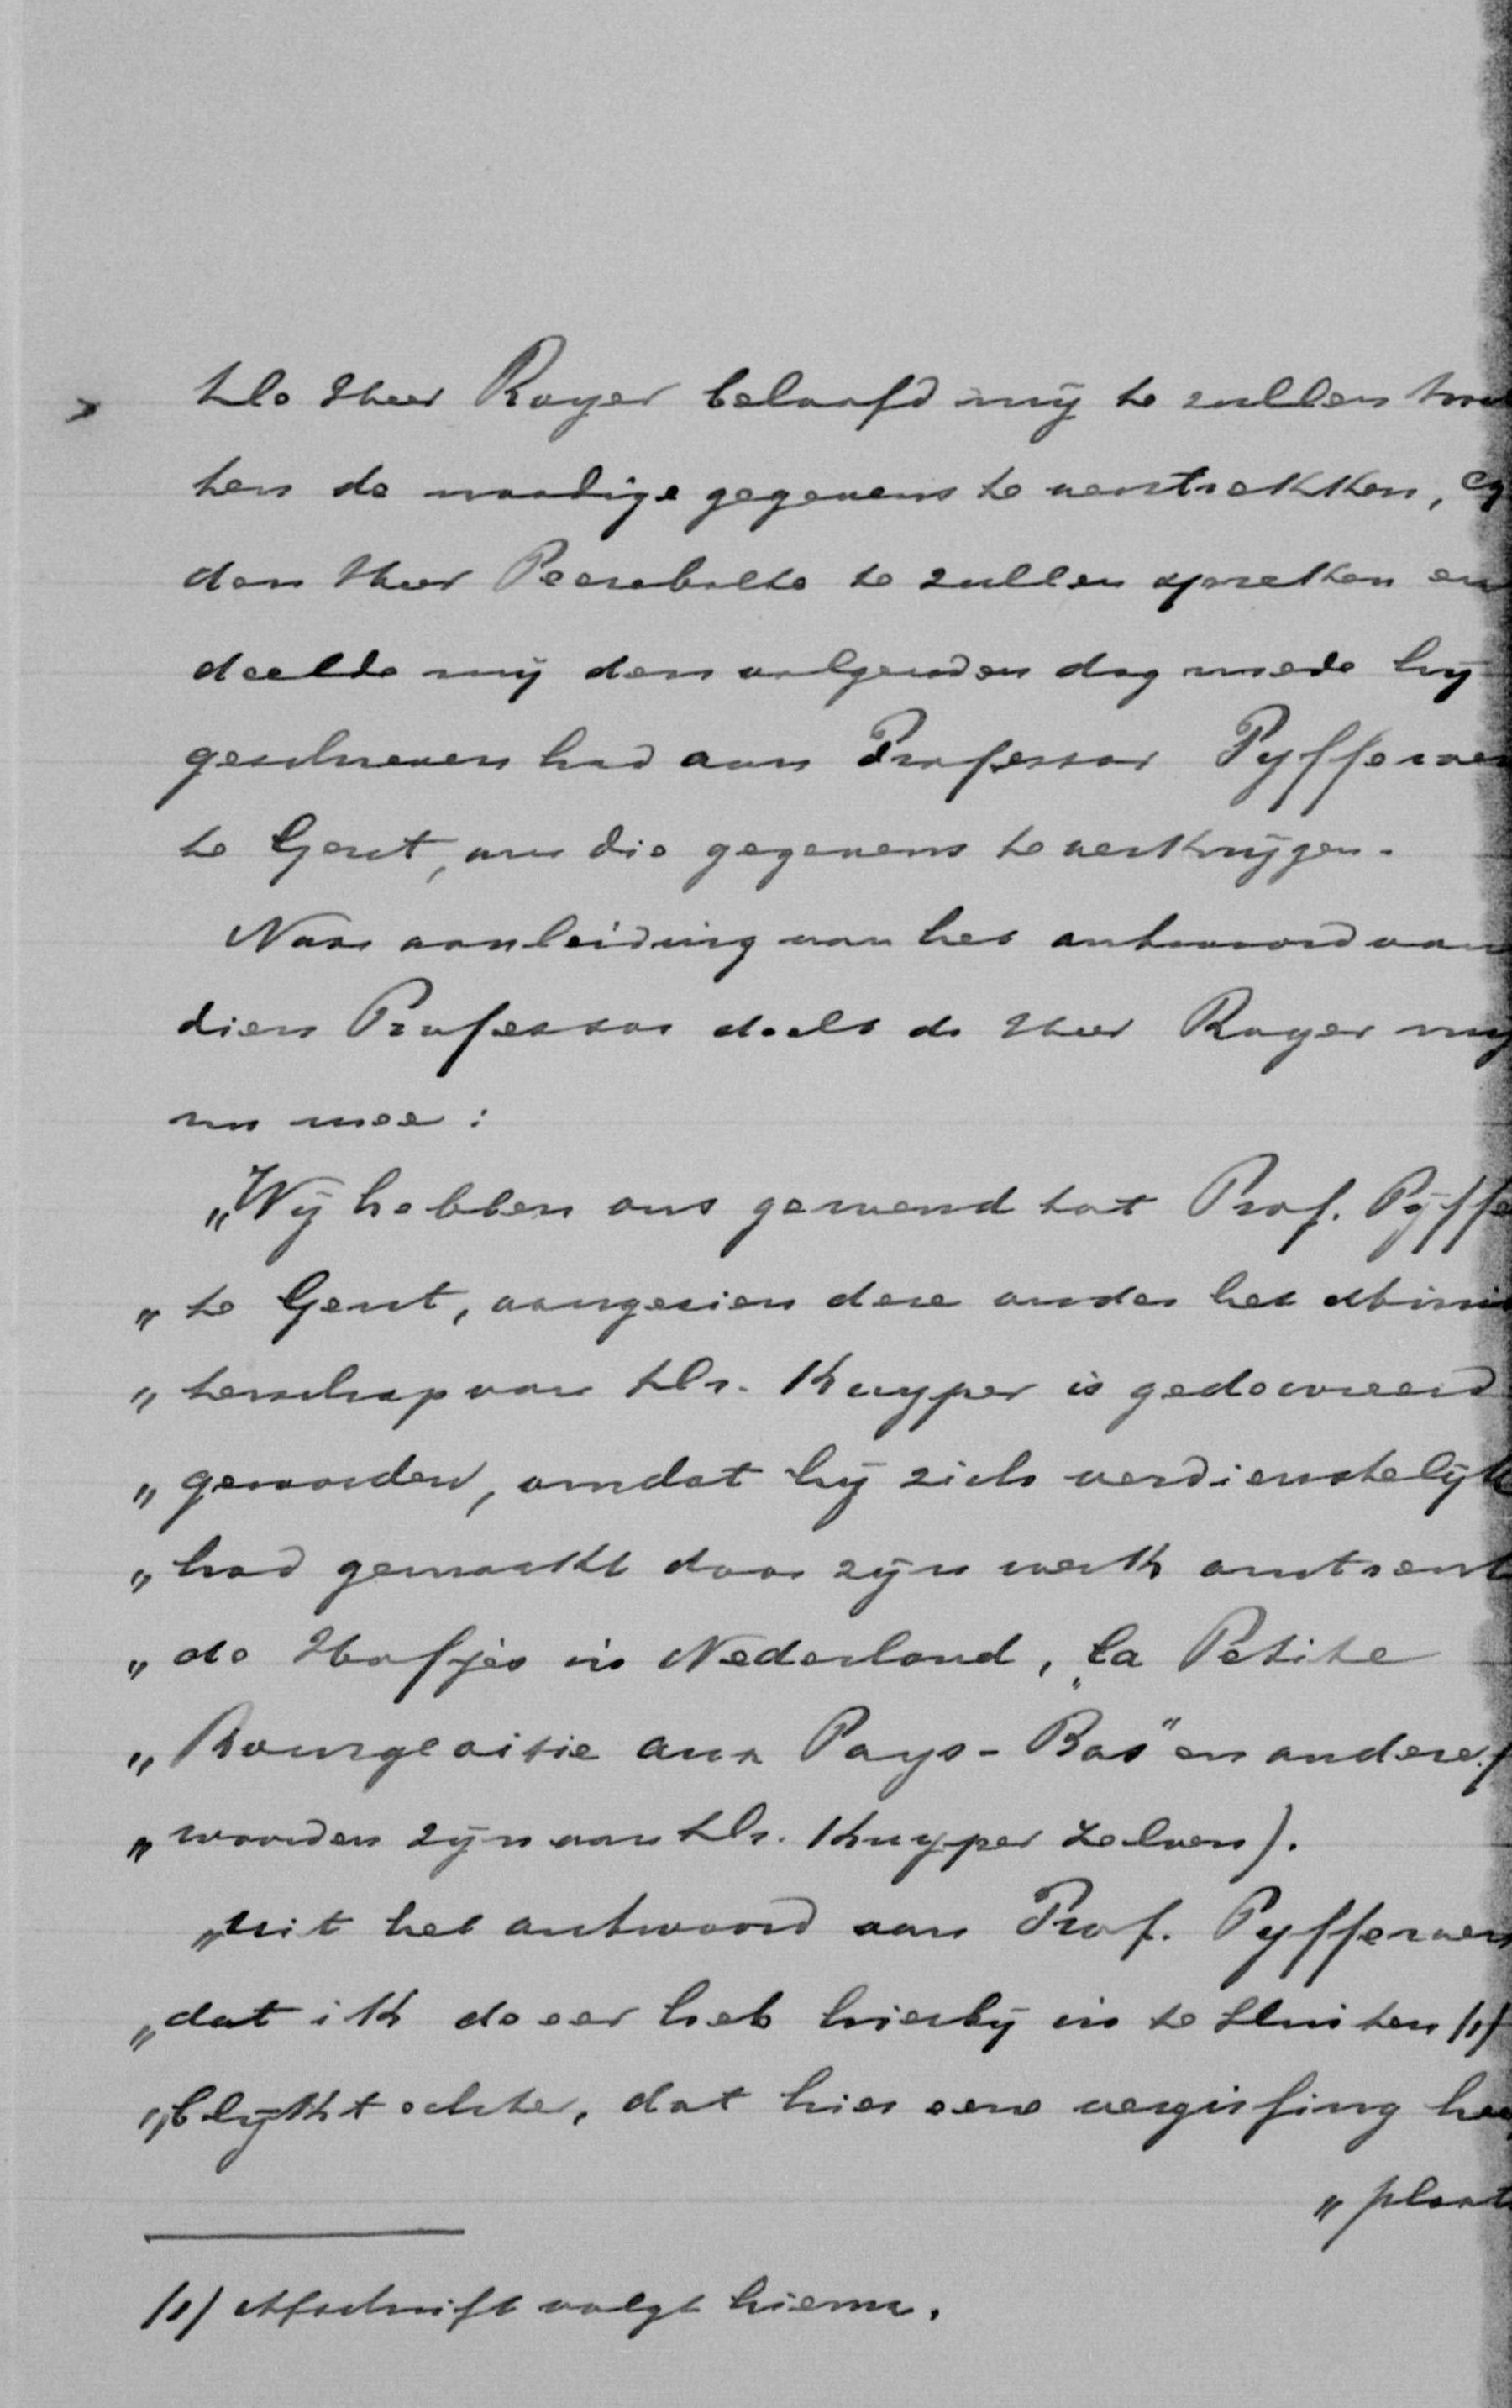 De Heer Royer beloofd mij te zullen trach
ten de noodige gegevens te verstrekken,
den Heer Peerebolte te zullen spreken en
deelde mij den volgenden dag mede hij
geschreven had aan Professor Pyfferoen
te Gent, om die gegevens te verkrijgen.
Naar aanleiding van het antwoord van
dien Professor deelt de Heer Royer mij
nu mee:
„Wij hebben ons gewend tot Prof. Pyffe
„te Gent, aangezien deze onder het Minis
„terschap van Dr. Kuyper is gedecoreerd
„geworden, omdat hij zich verdienstelijk
„had gemaakt door zijn werk omtrent
„de Hofjes in Nederland, „La Petite
„Bourgeoisie aux Pays-Bas" en andere (
„woorden zijn van Dr. Kuyper zelven).
„Uit het antwoord van Prof. Pyfferoen
„dat ik de eer heb hierbij in te sluiten (1)
„blijkt echter, dat hier eene vergissing hee
„plaat
(1) Afschrift volgt hierna.